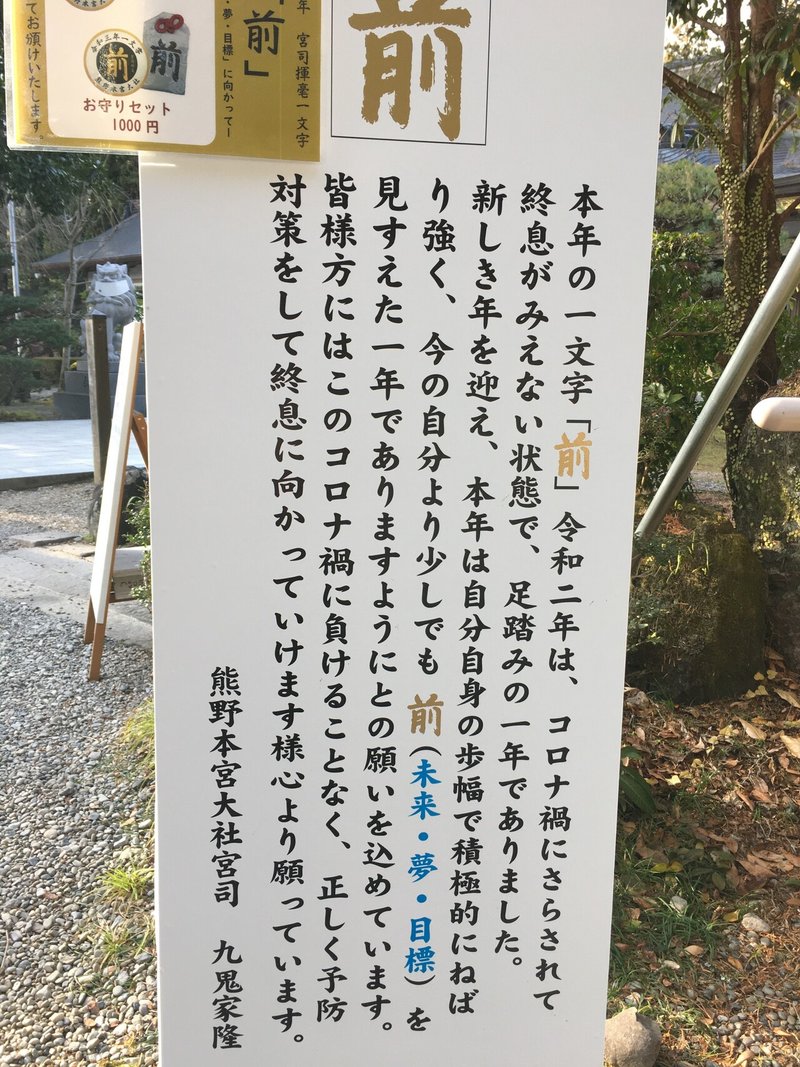 前
本年の一文字「前」令和二年は、コロナ禍にさらされて
終息がみえない状態で、足踏みの一年でありました。
新しき年を迎え、本年は自分自身の歩幅で積極的にねば
り強く、今の自分より少しでも前(未来・夢・目標)を
見すえた一年でありますようにとの願いを込めています。
皆様方にはこのコロナ禍に負けることなく、正しく予防
対策をして終息に向かっていけます様心より願っています。
熊野本宮大社宮司 九鬼家隆
年 宮司揮毫一文字
「前」
夢・目標」に向かってー
令和三年一文字
前
前
お守りセット
1000円
てお頒けいたします。